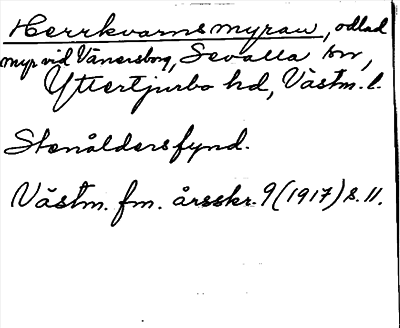 Herrkvarnsmyran, odlad
myr vid Vänersborg, Sevalla sn,
Yttertjurbo hd, Västm. l.
Stenåldersfynd.
Västm. fm. årsskr. 9 (1917) s. 11.